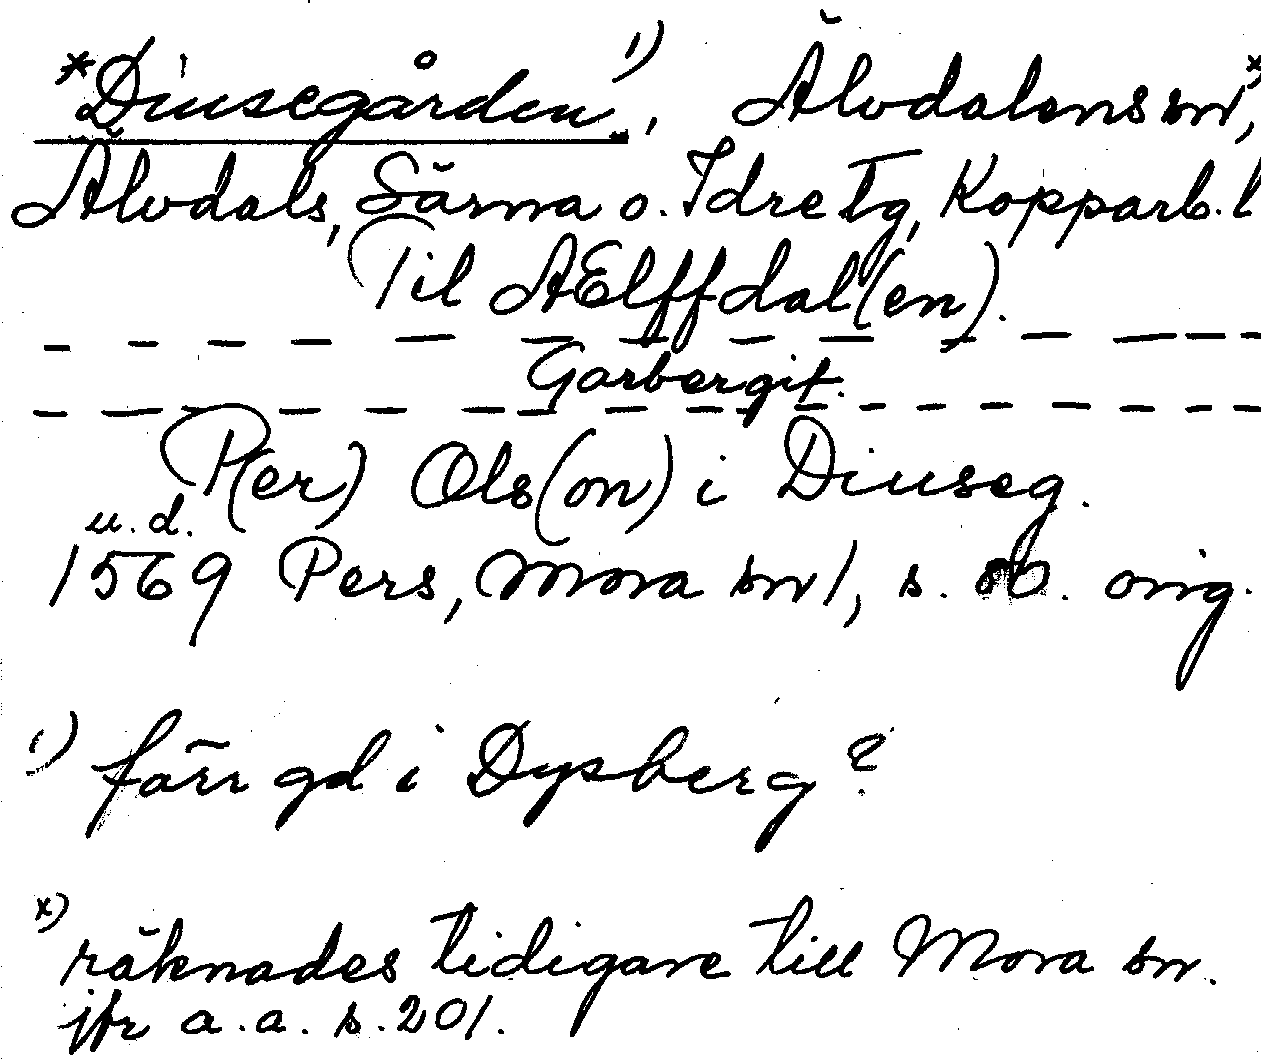 *Diusegården 1), Älvdalens sn x),
Älvdals, Särna o. Idre Tg, Kopparb. l
Til AElffdal(en).
Garbergit.
P(er) Ols(on) i Diuseg.
u.d.
1569 Pers, Mora sn 1, s. orig.
1) förr gd i Dysberg?
x) räknades tidigare till Mora sn.
jfr a.a. s. 201.